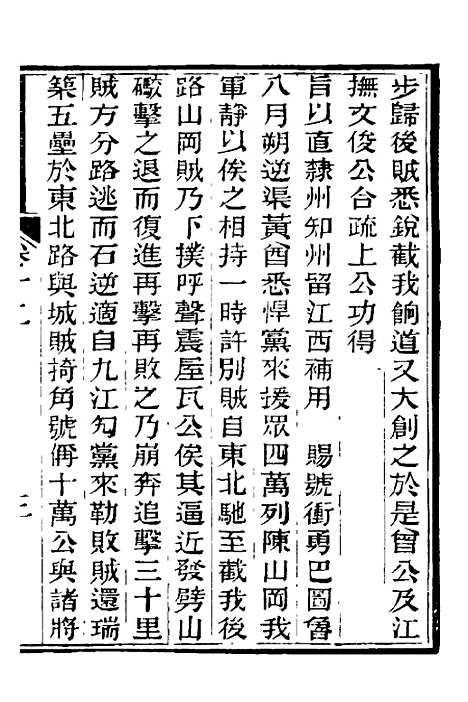 步歸後賊悉銳截我餉道又大創之於是曾公及江
撫文俊公台疏上公功得
旨以直隷州知州留江西補用　賜號衝勇巴圖魯
八月朔逆渠黃酋悉悍黨來援眾四萬列陳山岡我
軍靜以俟之相持一時許別賊自東北馳至截我後
路山岡賊乃下撲呼聲震屋瓦公俟其逼近發劈山
礮擊之退而復進再擊再敗之乃崩奔追擊三十里
賊方分路逃而石逆適自九江勾黨來勒敗賊還瑞
築五壘於東北路與城賊掎角號偁十萬公與諸將